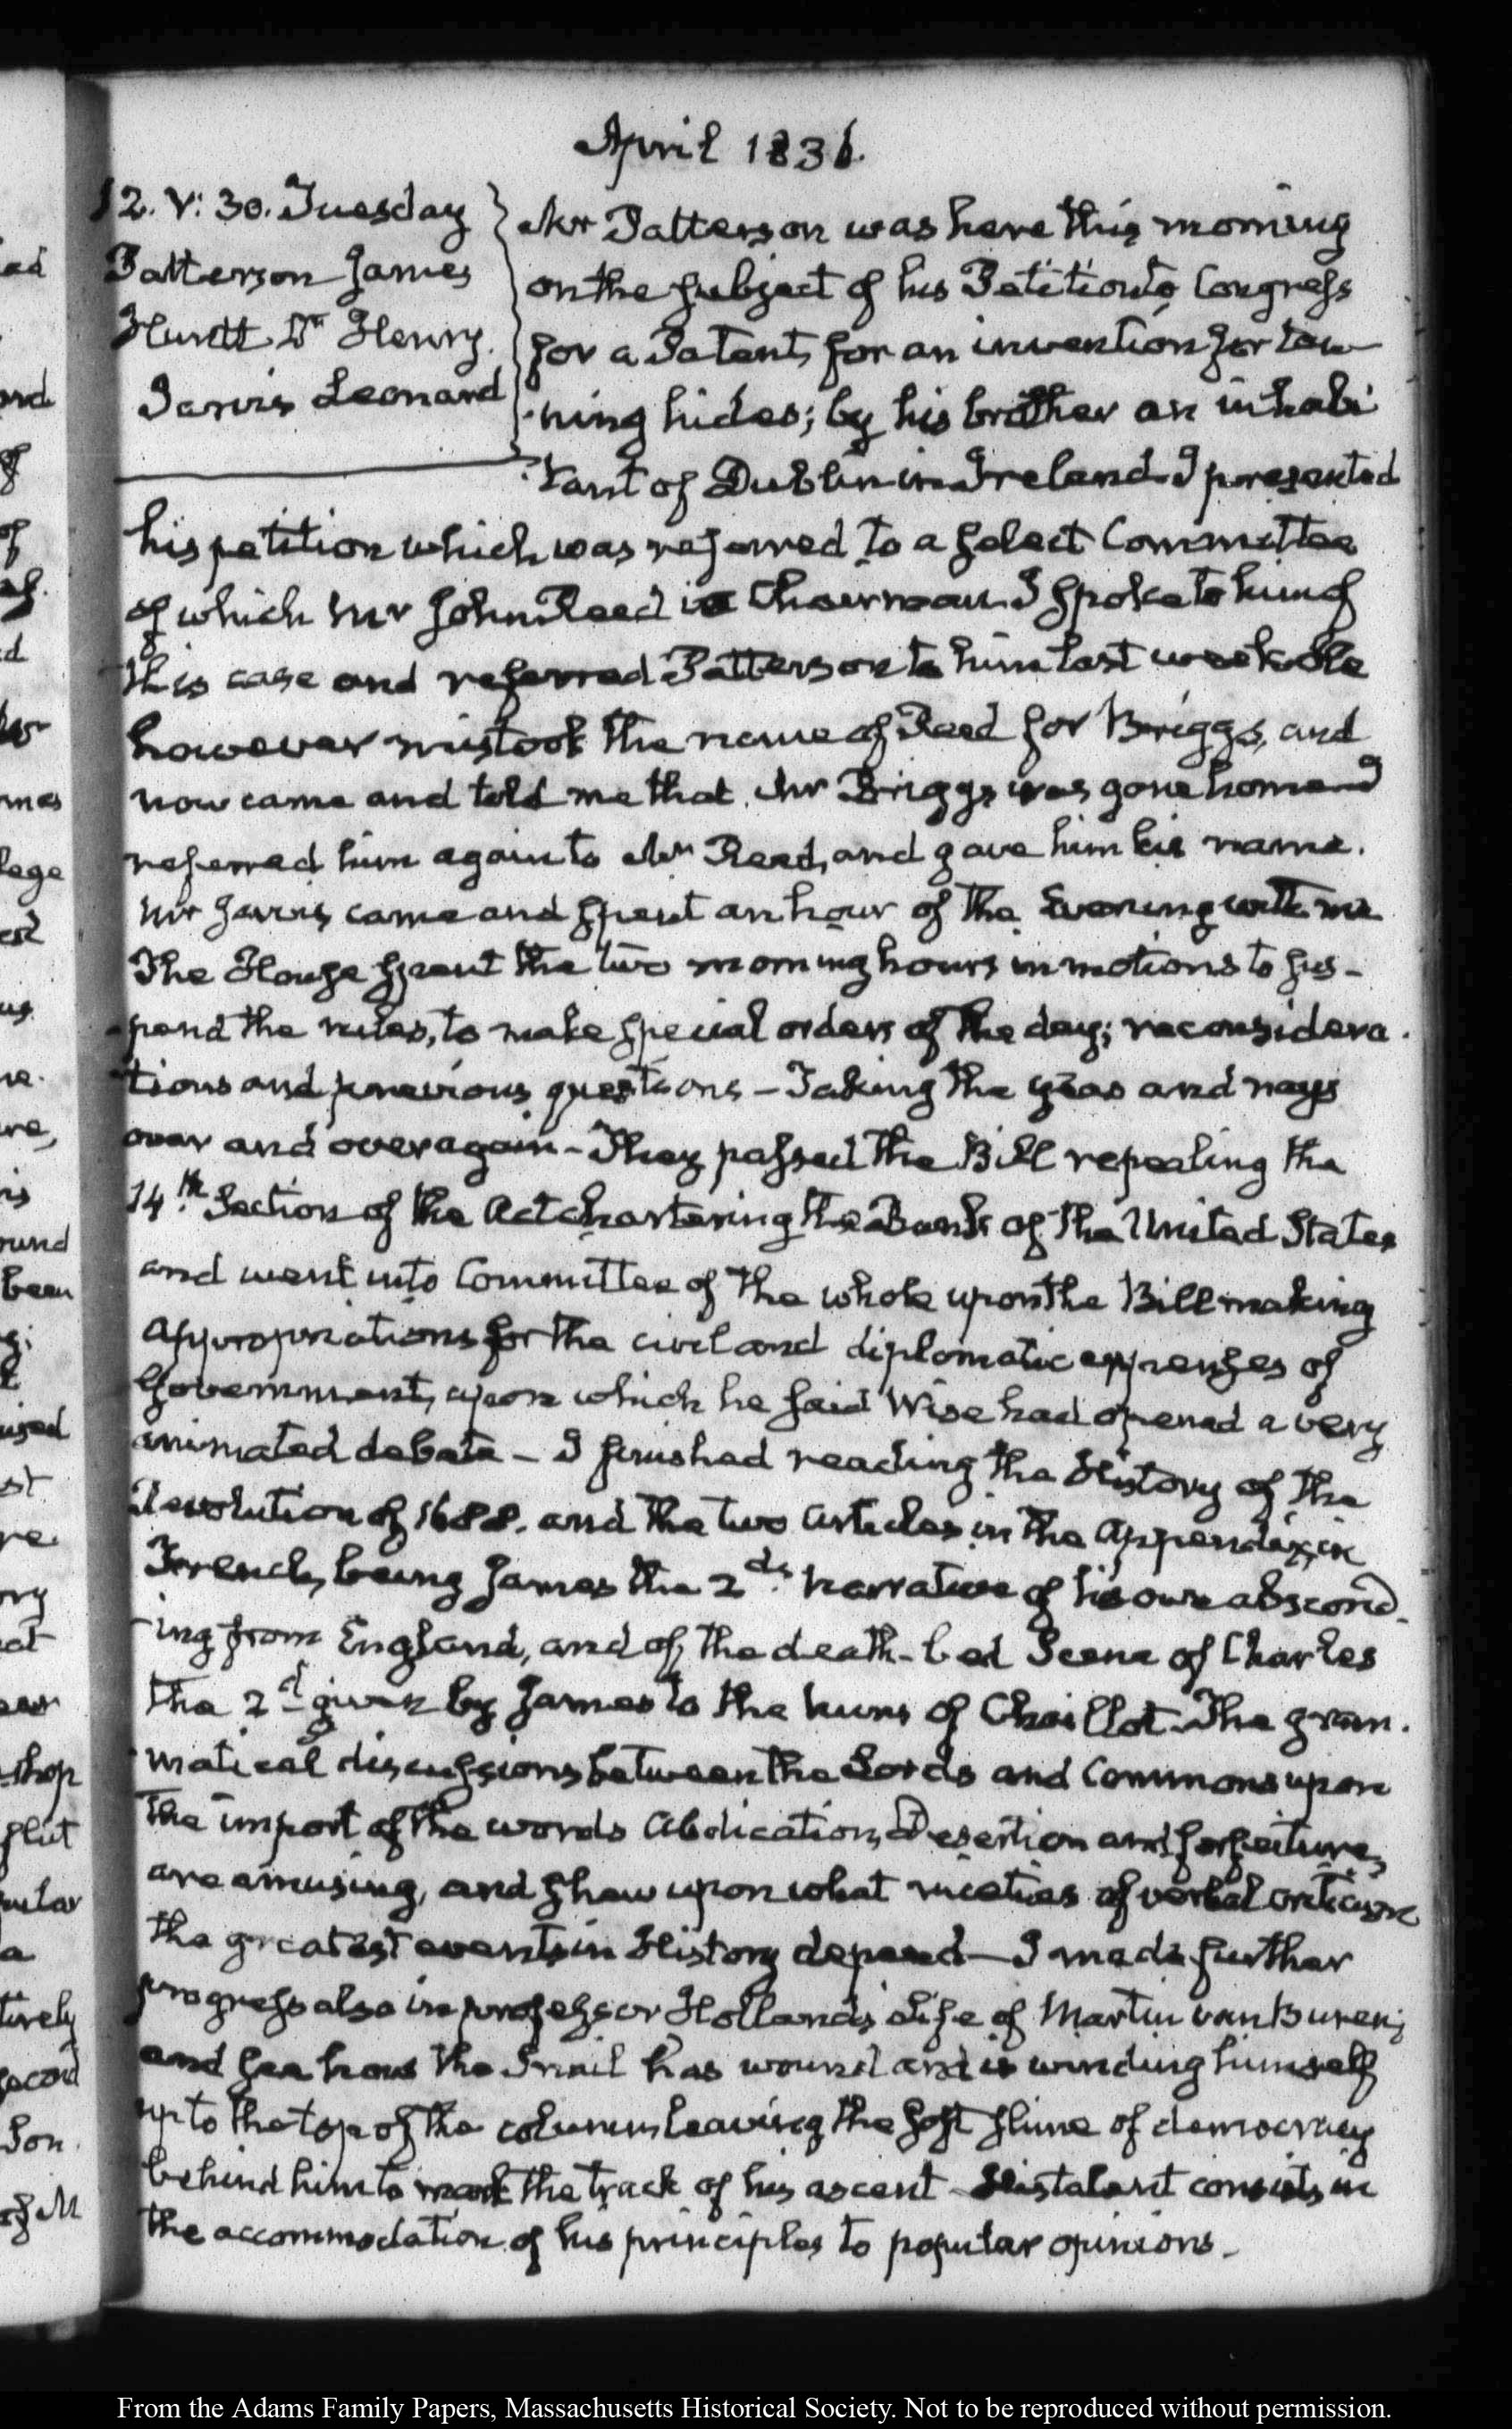 April 1836.
12. V: 30. Tuesday
Patterson James
Huntt Dr Henry.
Jarvis Leonard
Mr Patterson was here this morning
on the subject of his Petition to Congress
for a Patent, for an invention for tan-
ning hides; by his brother an inhabi
tant of Dublin in Ireland. I presented
his petition which was referred to a select Committee
of which Mr John Reed is Chairman. I spoke to him of
this case and referred Patterson to him last week. He
however mistook the name of Reed for Briggs, and
now came and told me that Mr Briggs was gone home. I
referred him again to Mr Reed, and gave him his name.
Mr Jarvis came and spent an hour of the Evening with me
The House spent the two morning hours in motions to sus-
pend the rules, to make special orders of the day; reconsidera-
tions and previous questions – Taking the yeas and nays
over and over again – They passed the Bill repealing the
14th. Section of the Act chartering the Bank of the United States
and went into Committee of the whole upon the Bill making
appropriations for the civil and diplomatic expenses of
Government, upon which he said Wise had opened a very
animated debate – I finished reading the History of the
Revolution of 1688. and the two articles in the Appendix, in
French, being James the 2ds. narrative of his own abscond-
ing from England, and of the death-bed Scene of Charles
the 2d given by James to the nuns of Chaillot. The gram-
matical discussions between the Lords and Commons upon
the import of the words Abdication, Desertion and forfeiture,
are amusing, and shew upon what niceties of verbal criticism
the greatest events in History depend – I made further
progress also in professor Holland's Life of Martin van Buren;
and see how the Snail has wound and is winding himself
up to the top of the column, leaving the soft slime of democracy
behind him to mark the track of his ascent – His talent consists in
the accommodation of his principles to popular opinions –
From the Adams Family Papers, Massachusetts Historical Society. Not to be reproduced without permission.